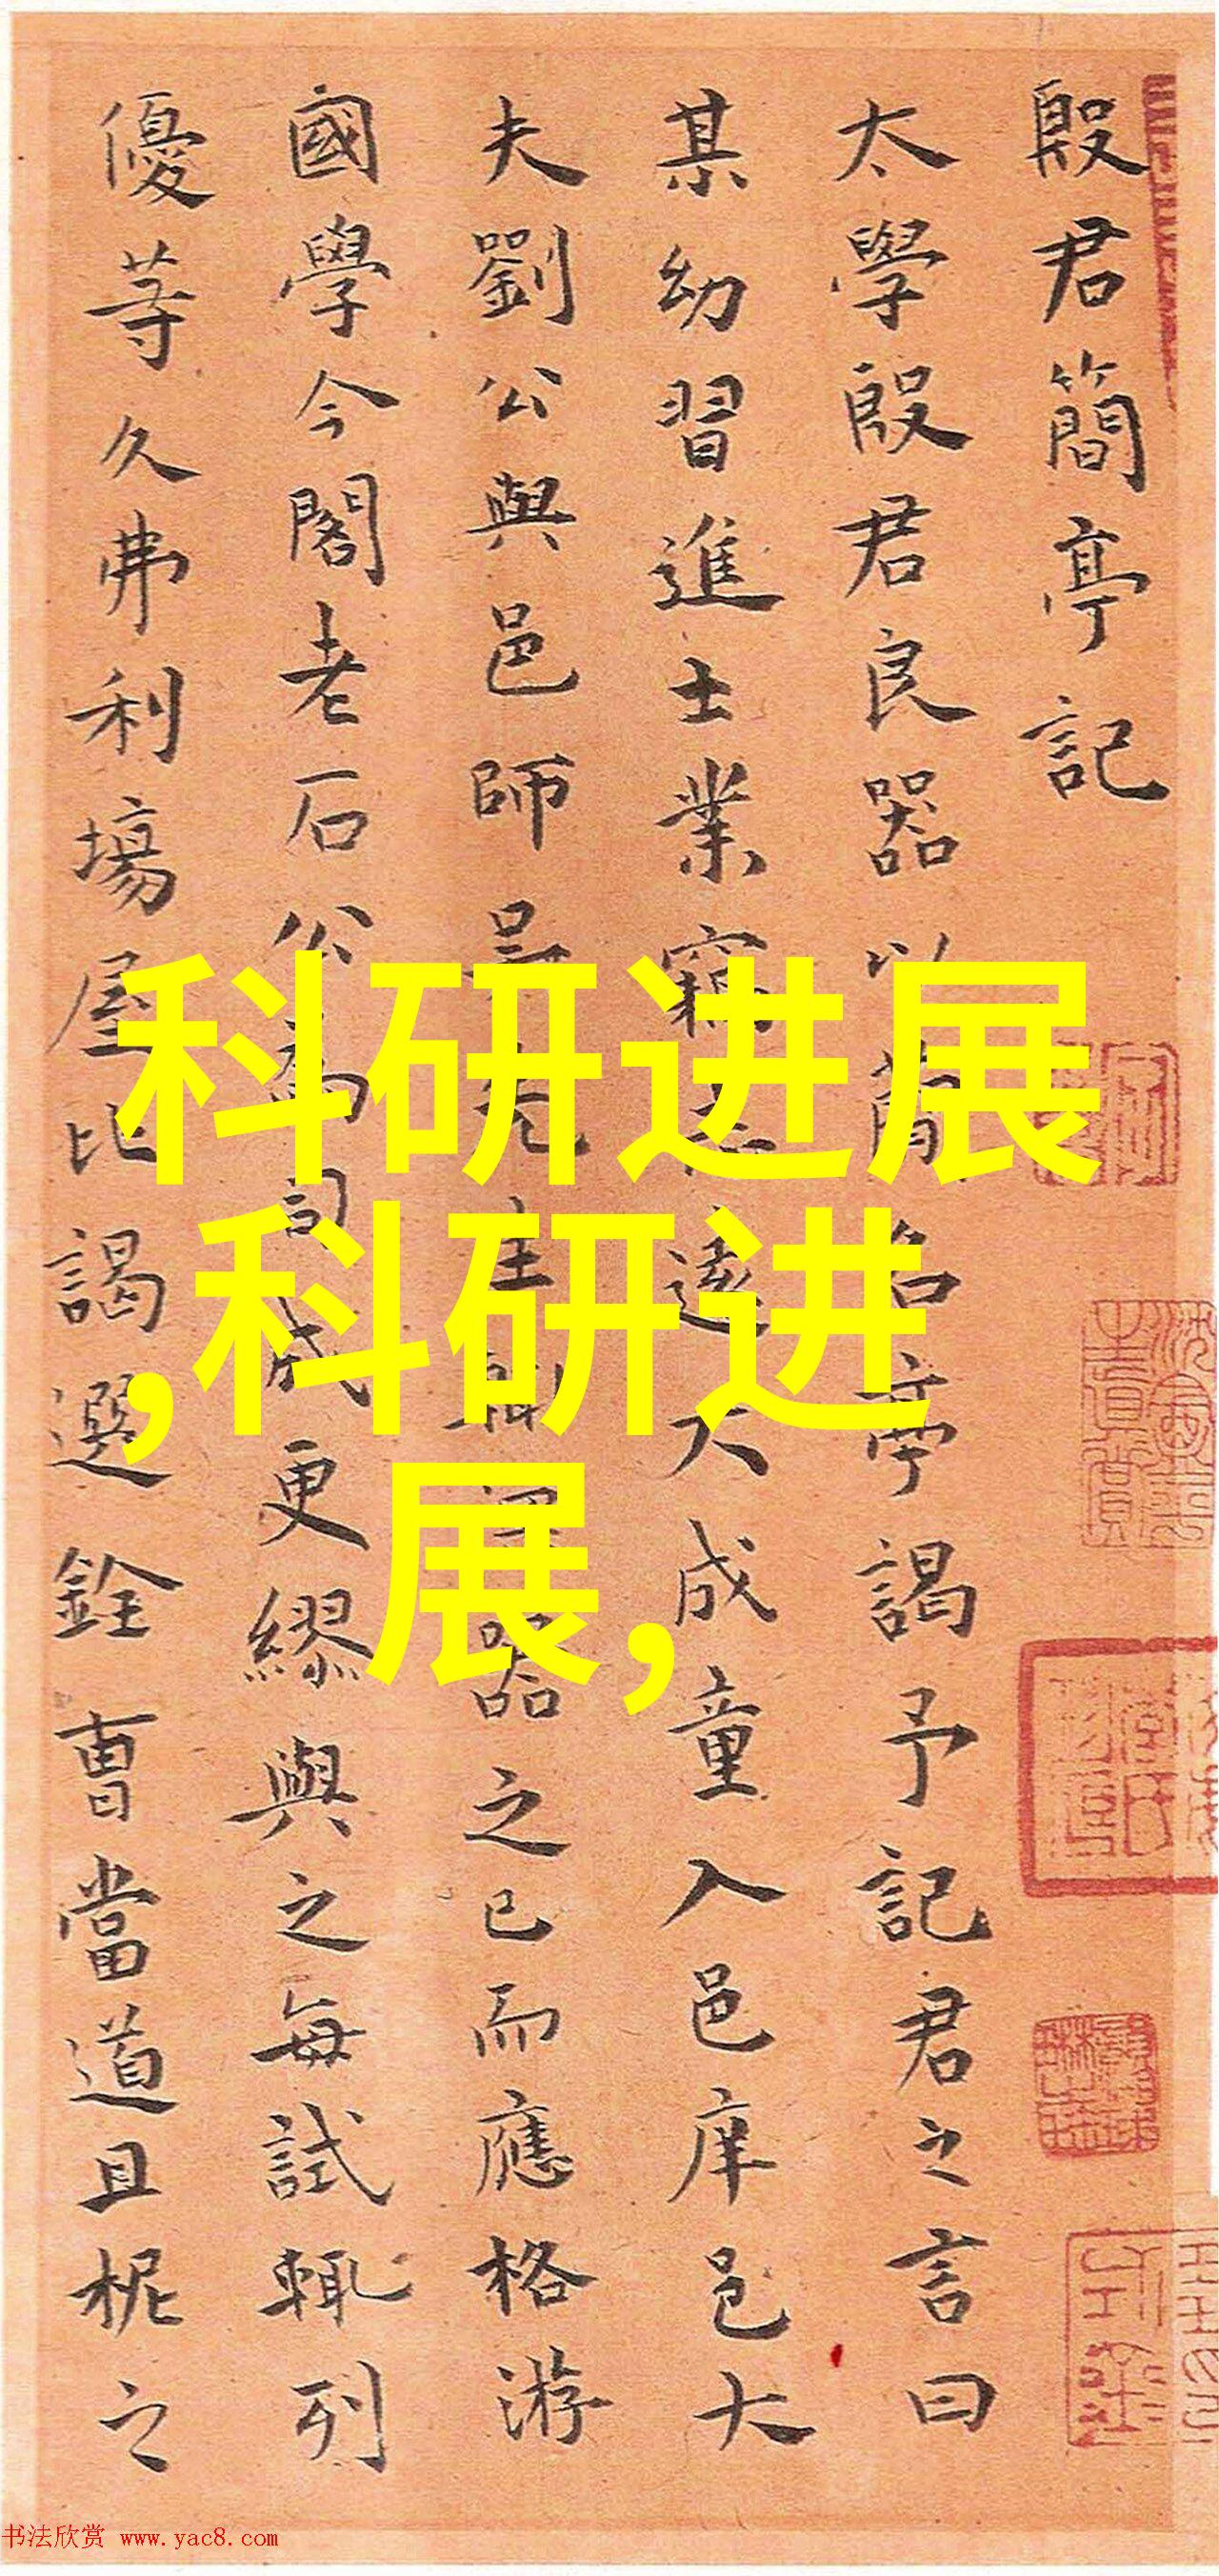 殷君簡亭記
太學殷君良器以簡名亭謁予記君之言曰
某幼習進士業竊志遠大成童入邑庠邑大
夫劉公與邑師吳先生輒器之已而應格游
國學今閣老石公為司成更繆與之每試輒列
優等久弗利場屋比謁選銓曹當道且柅之
科研进展
,科研进
展,
书法欣赏 www.yac8.com